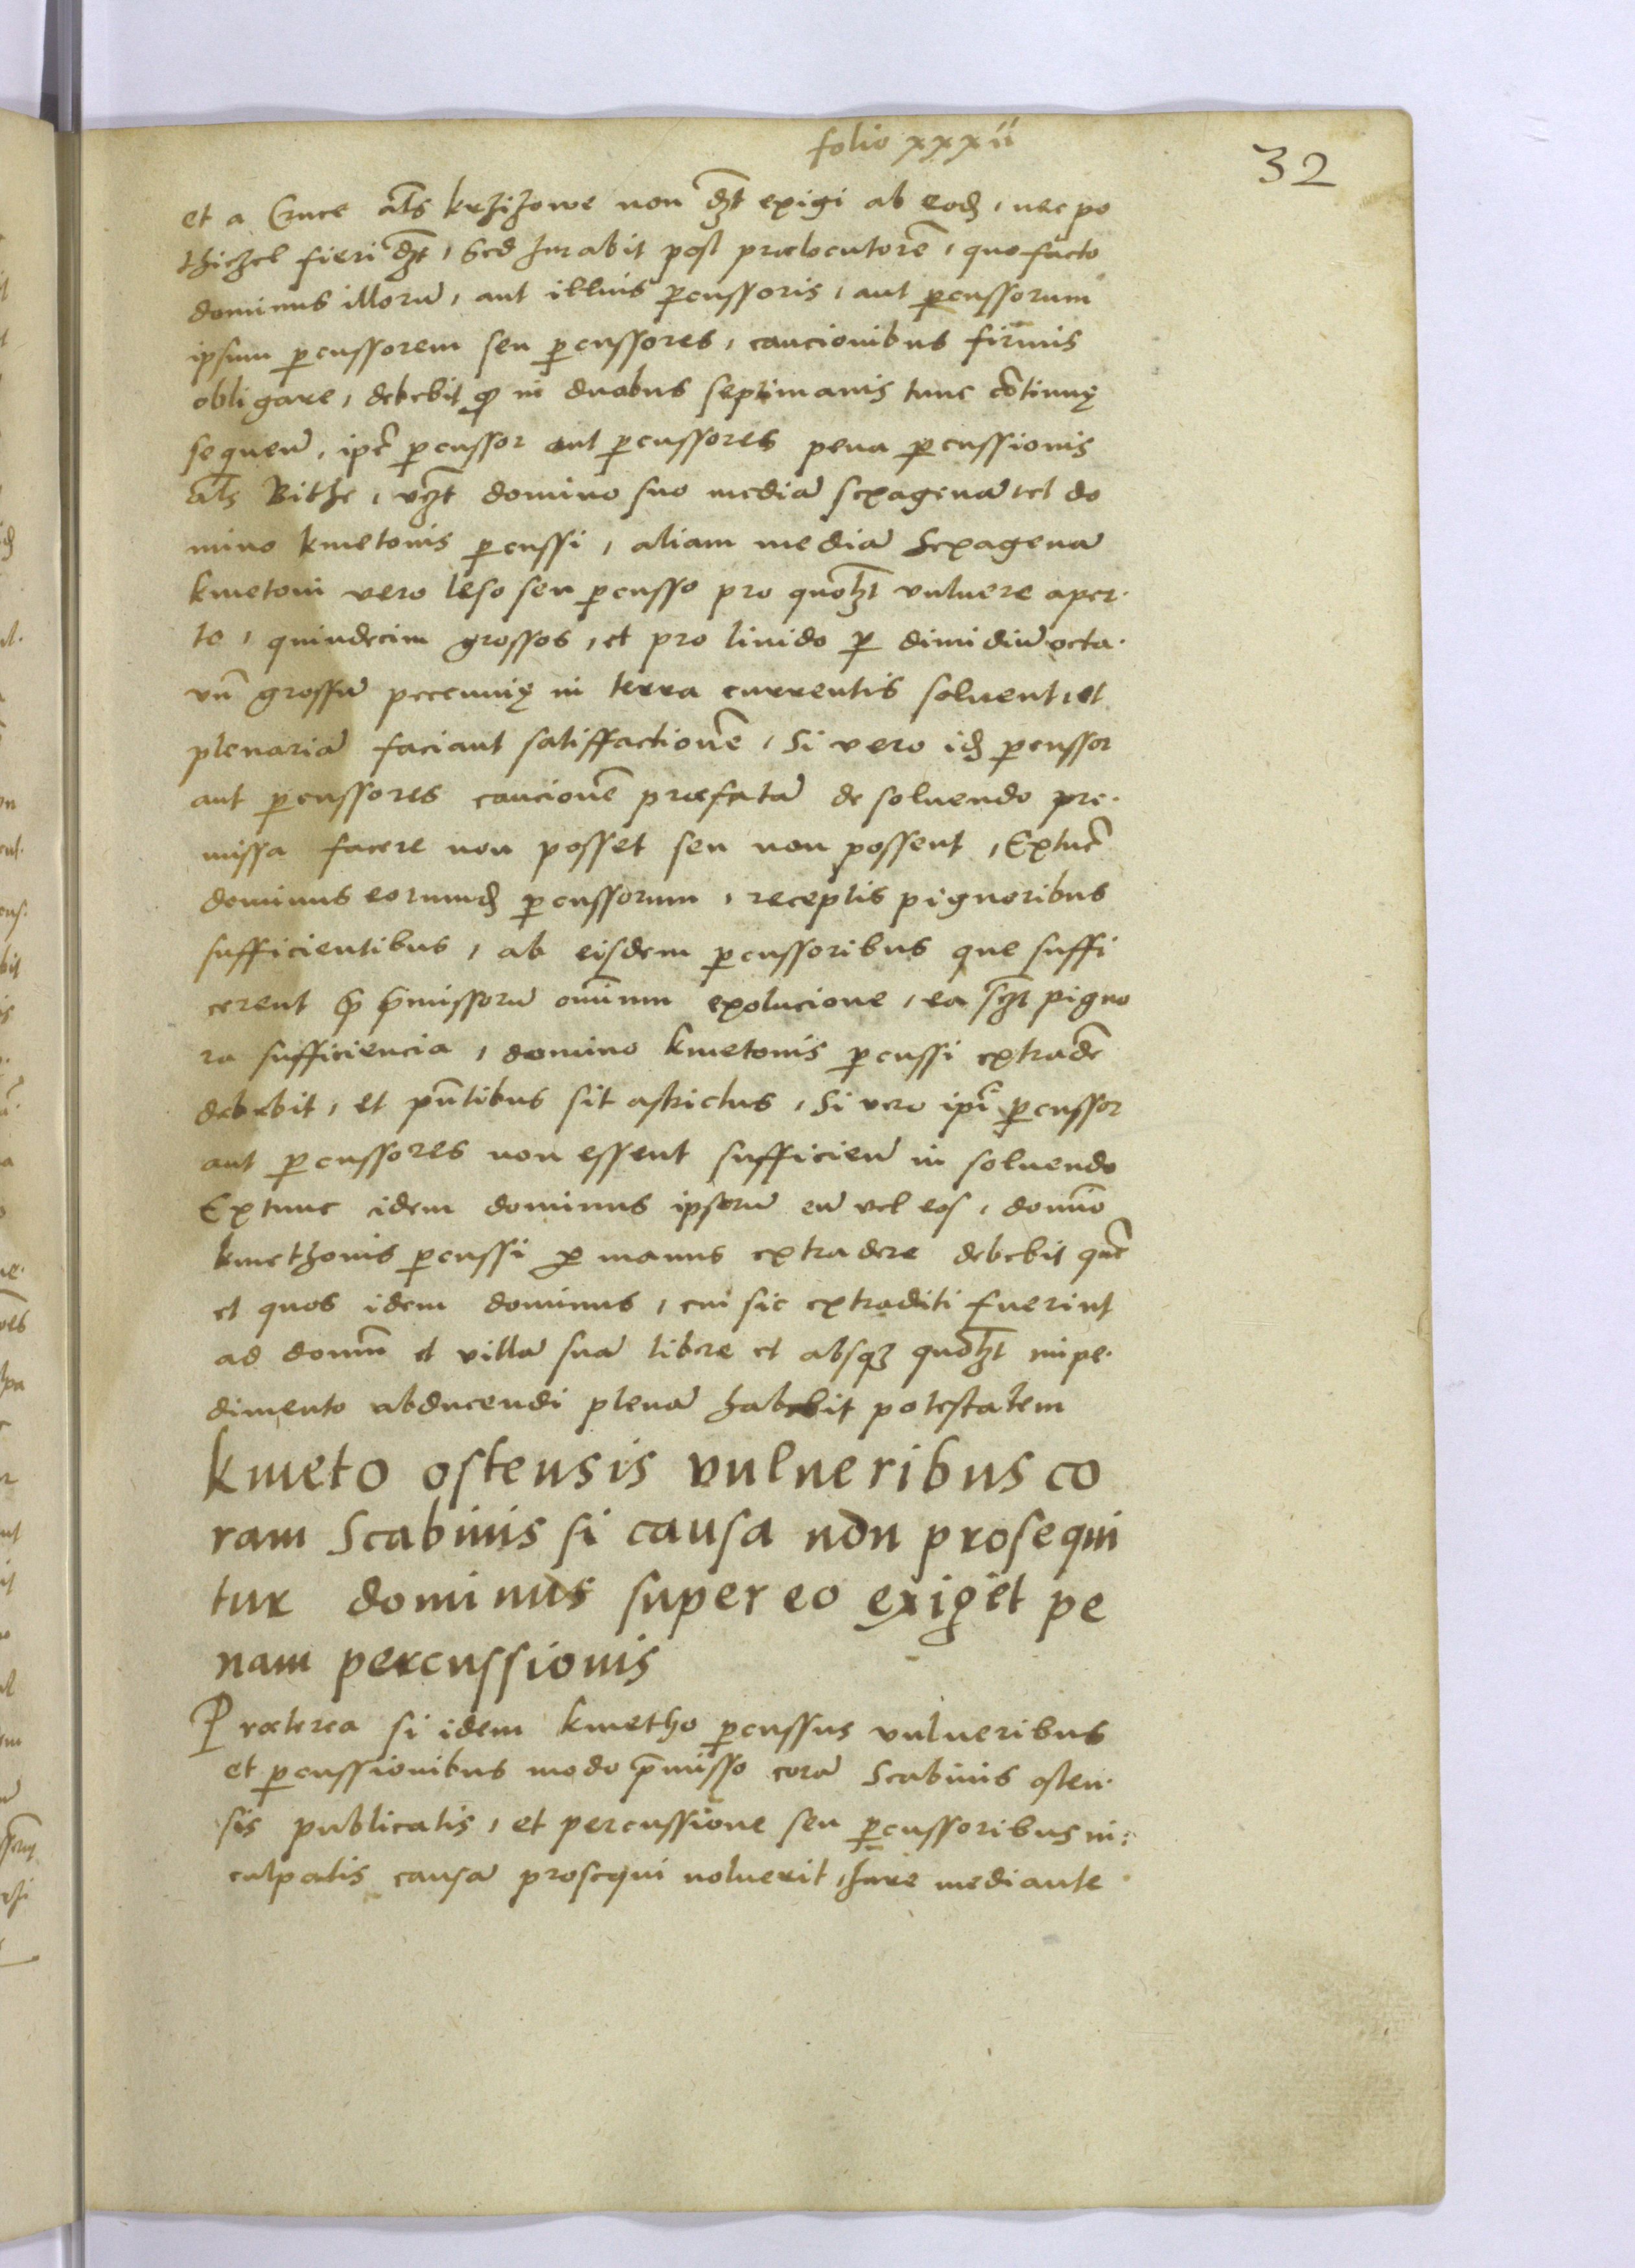 folio xxxii
32
et a Cruce als̄ krzizowe non dꝫt exigi ab eod̄, nec po
thiczel fieri dꝫt, Sed Jurabit post prælocutorē, quo facto
dominus illorū, aut illius ꝑcussoris, aut ꝑcussorum
ipsum ꝑcussorem seu ꝑcussores, caucionibus firmis
obligare, debebit ꝙ in duabus septimanis tunc cōtinuę
sequen̄, ipē ꝑcussor aut ꝑcussores pena ꝑcussionis
als̄ Bithe, vꝫt domino suo mediā sexagenā vel do
mino kmetonis ꝑcussi, aliam mediā Sexagenā
kmetoni vero leso seu ꝑcusso pro quolꝫt vulnere aper
to, quindecim grossos, et pro livido ꝑ dimidiū octa
vū grossū peccunię in terra currentis solvent, et
plenariā faciant satisfactionē, Si vero id̄ ꝑcussor
aut ꝑcussores caucionē præfatā de solvendo pre
missa facere non posset seu non possent, Extūc
dominus eorumd̄ ꝑcussorum, receptis pignoribus
sufficientibus, ab eisdem ꝑcussoribus que suffi
cerent ꝓ p̄missorū omnium exolucione, ea sꝫt pigno
ra sufficiencia, domino kmetonis ꝑcussi extradē
debebit, et pn̄tibus sit astrictus, Si vero ipī ꝑcussor
aut ꝑcussores non essent sufficien̄ in solvendo
Extunc idem dominus ipsorū eū vel eos, domīo
kmethonis ꝑcussi ꝑ manus extradere debebit quē
et quos idem dominus, cui sic extraditi fuerint
ad domū et villā suā libere et absqꝫ quolꝫt impe
dimento abducendi plenā habebit potestatem
kmeto ostensis vulneribus co
ram Scabinis si causa non prosequi
tur dominus super eo exiget pe
nam percussionis
Præterea si idem kmetho ꝑcussus vulneribus
et ꝑcussionibus modo p̄misso corā Scabinis osten
sis publicatis, et percussione seu ꝑcussoribus in:
culpatis causā prosequi noluerit, Jure mediante